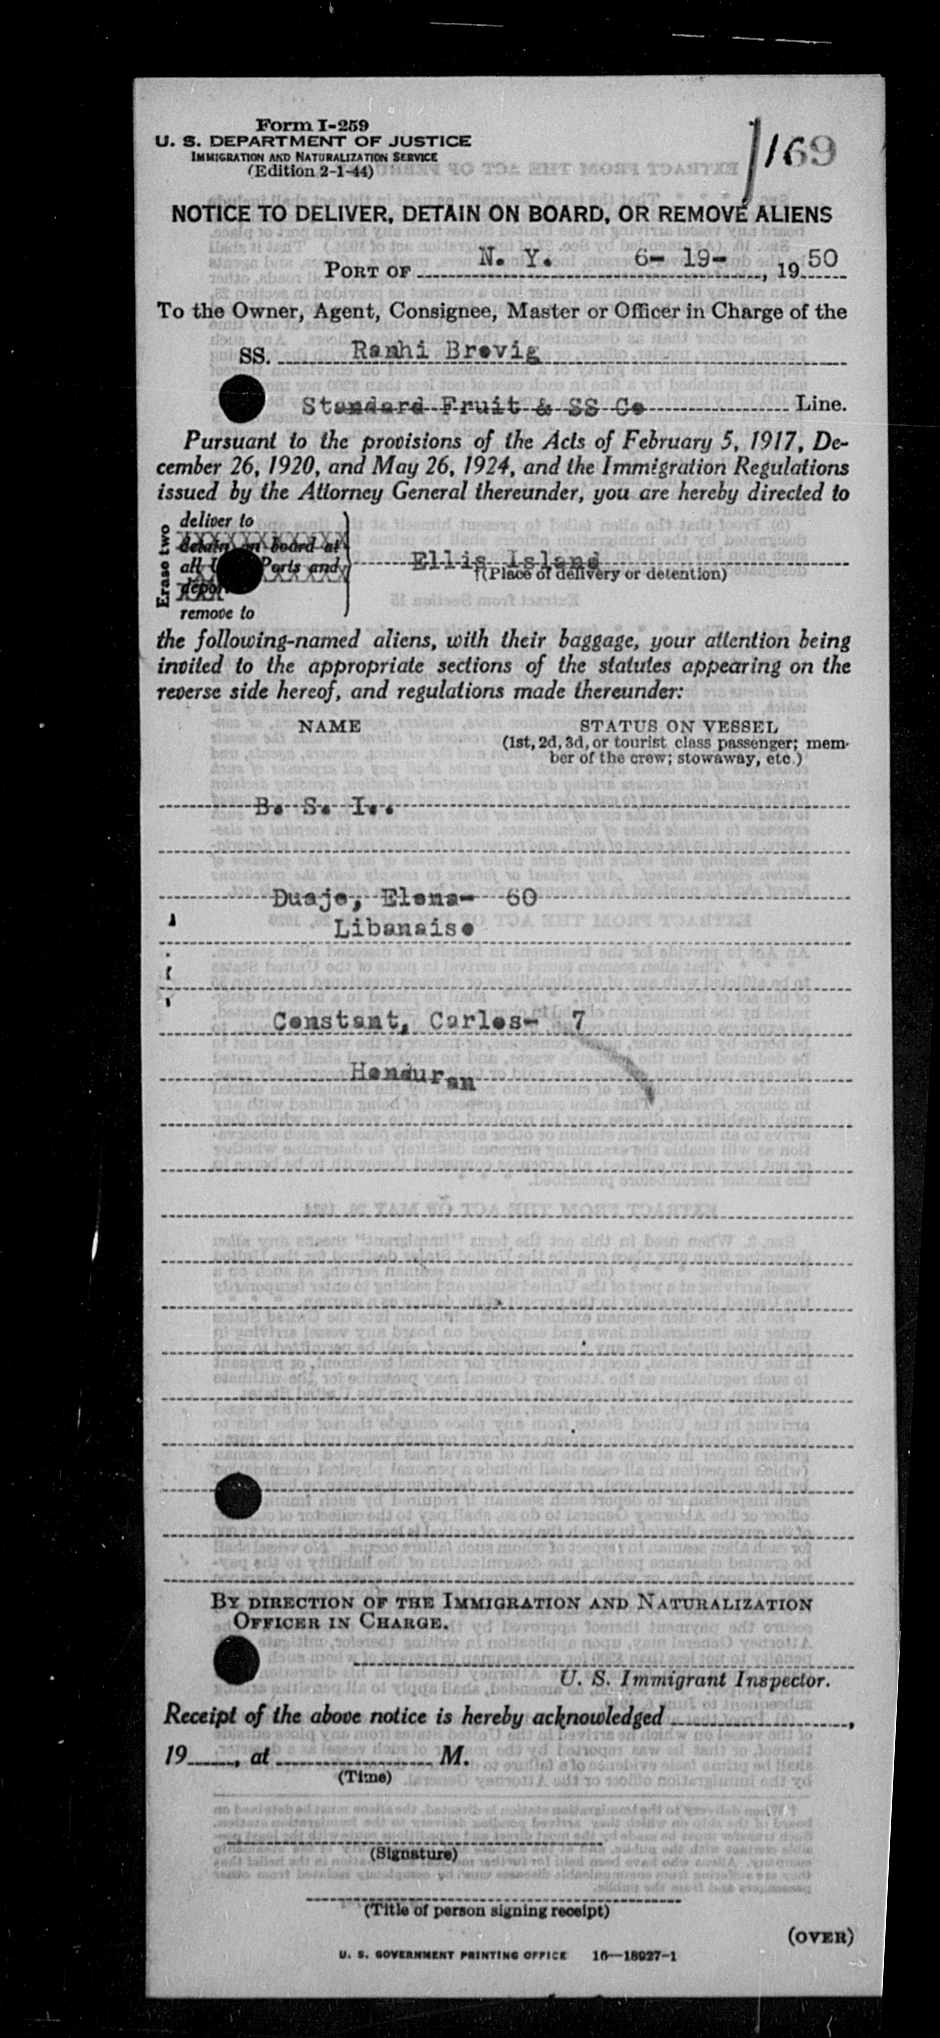 Form I-259
U. S. DEPARTMENT OF JUSTICE
IMMIGRATION AND NATURALIZATION SERVICE
(Edition 2-1-44)
169
NOTICE TO DELIVER, DETAIN ON BOARD, OR REMOVE ALIENS
PORT OF N. Y. 6- 19-, 1950
To the Owner, Agent, Consignee, Master or Officer in Charge of the
SS. Ranhi Brovig
Standard Fruit & SS Co Line.
Pursuant to the provisions of the Acts of February 5, 1917, De-
cember 26, 1920, and May 26, 1924, and the Immigration Regulations
issued by the Attorney General thereunder, you are hereby directed to
Erase two
deliver to
detain on board at
all Ports and
remove to
Ellis Island
†(Place of delivery or detention)
the following-named aliens, with their baggage, your attention being
invited to the appropriate sections of the statutes appearing on the
reverse side hereof, and regulations made thereunder:
NAME STATUS ON VESSEL
(1st, 2d, 3d, or tourist class passenger; mem-
ber of the crew; stowaway, etc.)
B. S. I..
Duaje, Elena- 60
Libanaise
Constant, Carlos- 7
Honduran
BY DIRECTION OF THE IMMIGRATION AND NATURALIZATION
OFFICER IN CHARGE.
U. S. Immigrant Inspector.
Receipt of the above notice is hereby acknowledged ,
19 , at M.
(Time)
(Signature)
(Title of person signing receipt)
(OVER)
U. S. GOVERNMENT PRINTING OFFICE 16—18927-1